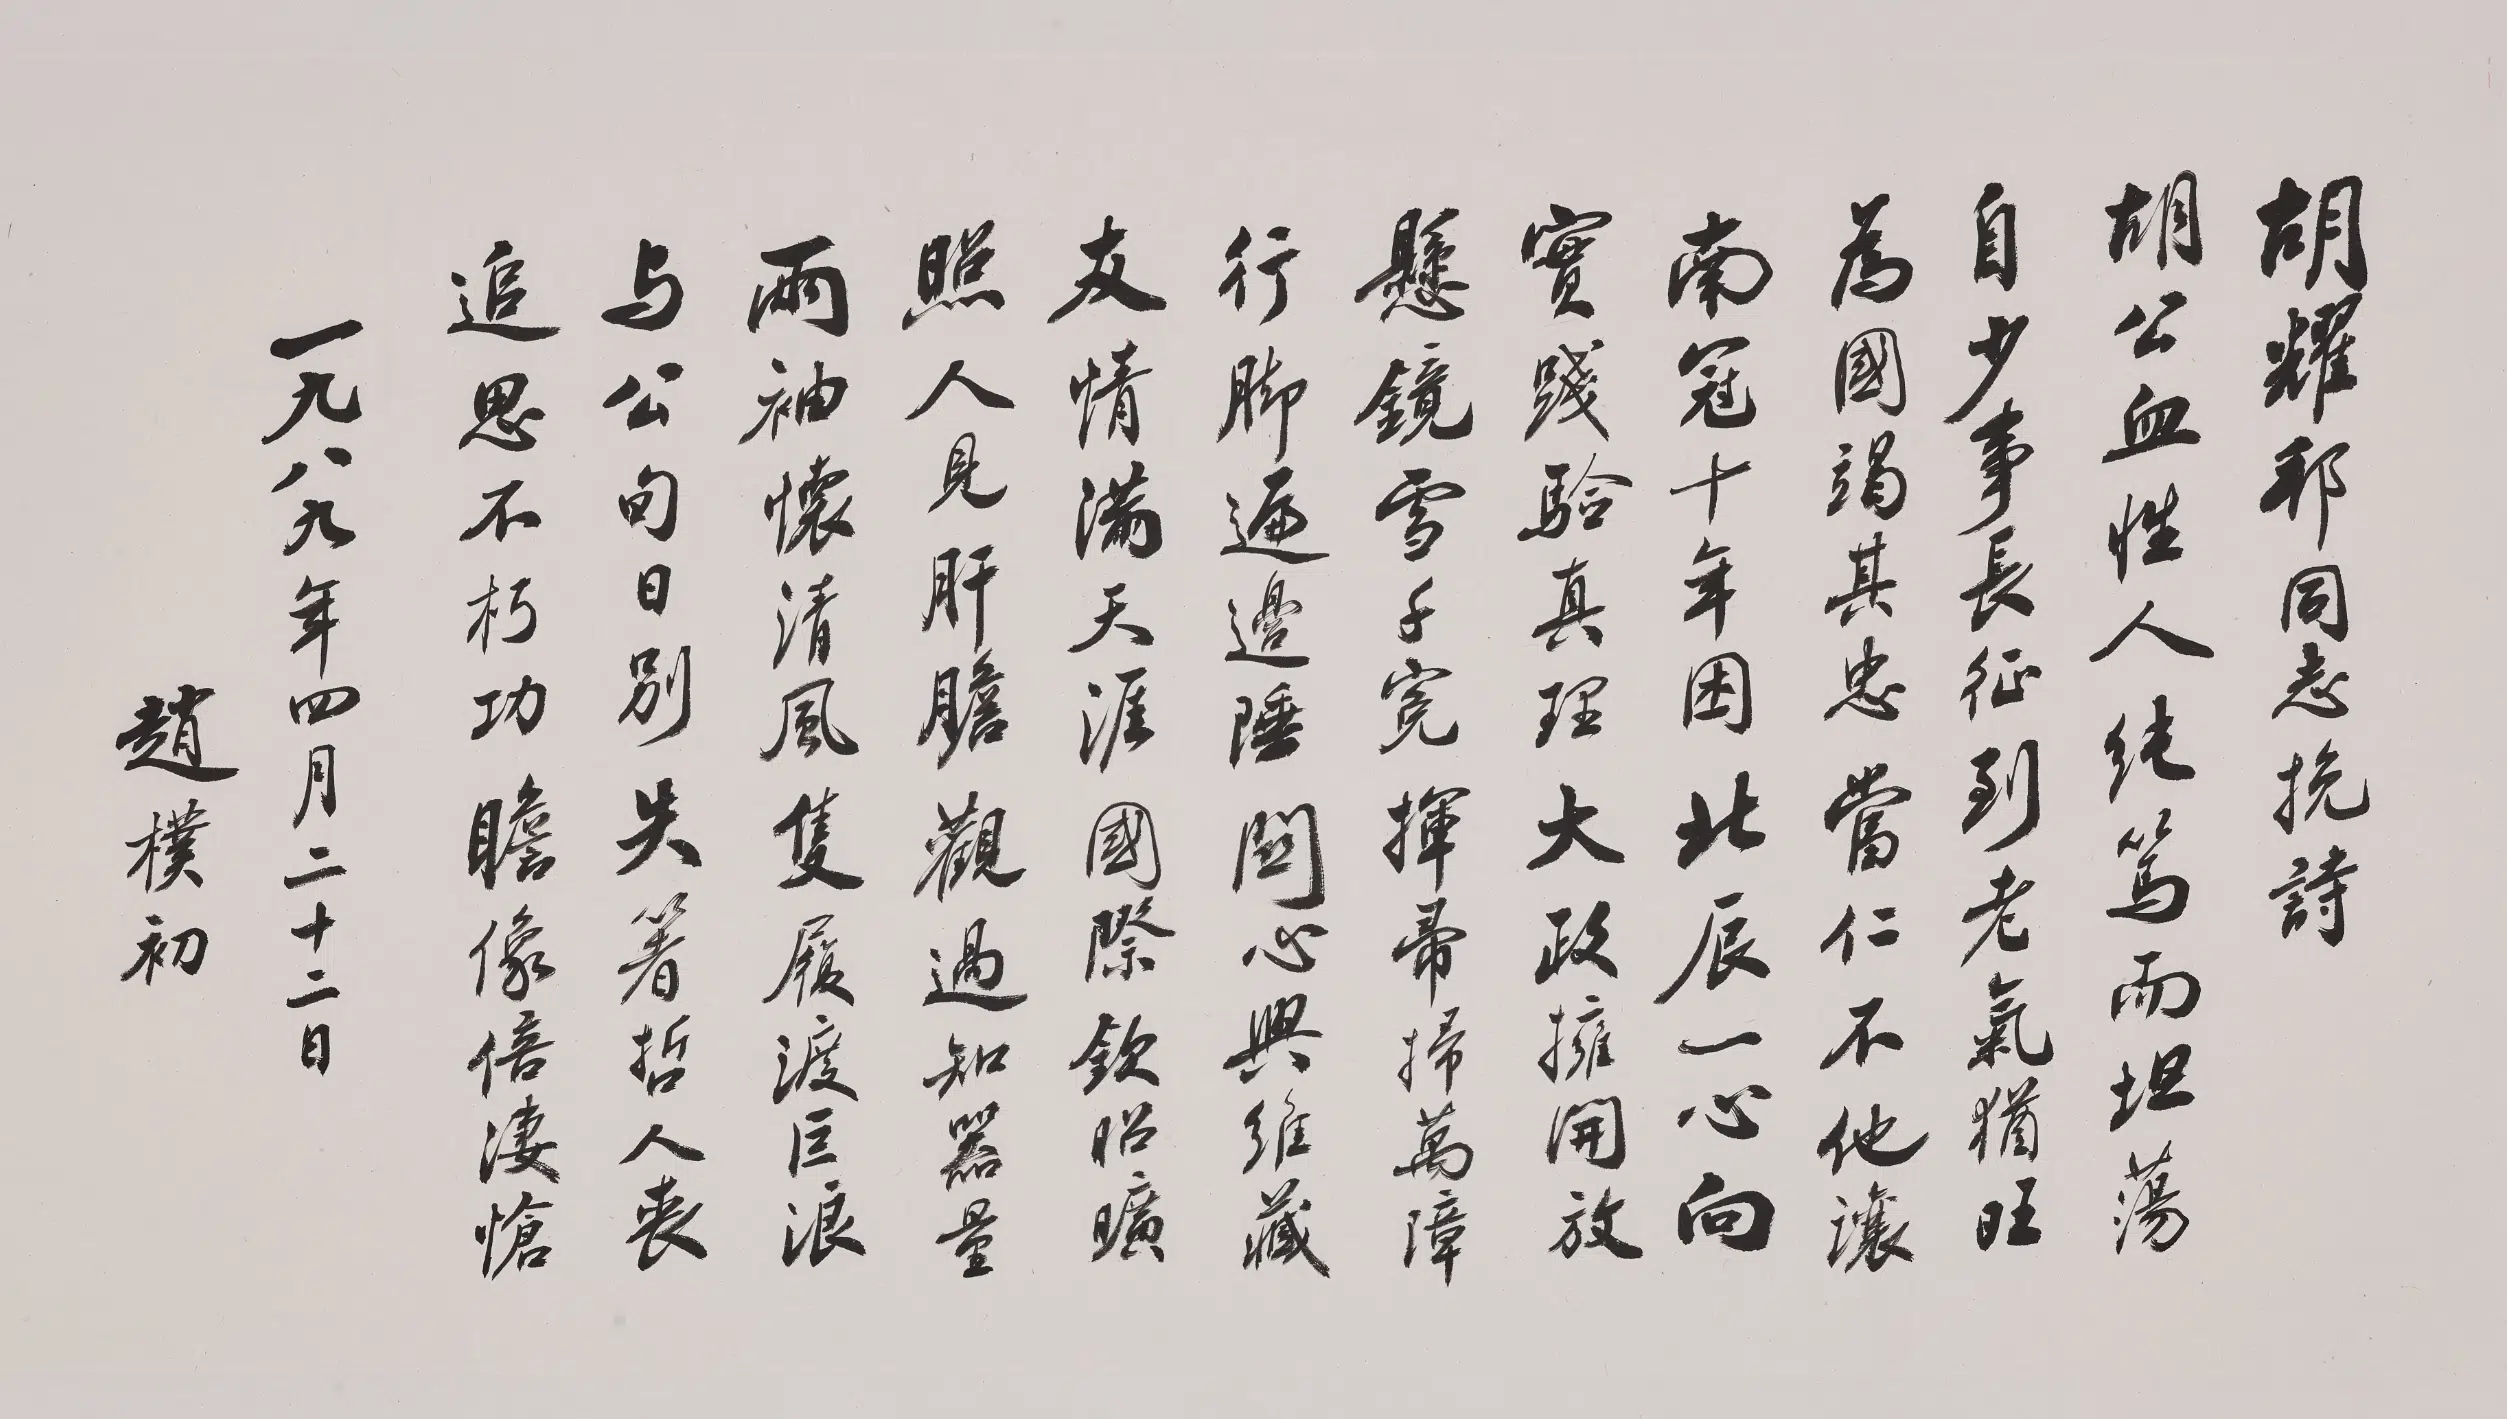 胡耀邦同志挽詩
胡公血性人純篤而坦蕩
自少事長征到老氣猶旺
為國竭其忠當仁不他讓
南冠十年困北辰一心向
實踐驗真理大政擁開放
懸鏡雪千冤揮帚掃萬障
行脚遍邊陲關心興維藏
友情滿天涯國際欽昭曠
照人見肝膽觀過知器量
兩袖懷清風隻履渡巨浪
与公旬日別失箸哲人喪
追思不朽功瞻像倍淒愴
一九八九年四月二十二日
趙樸初